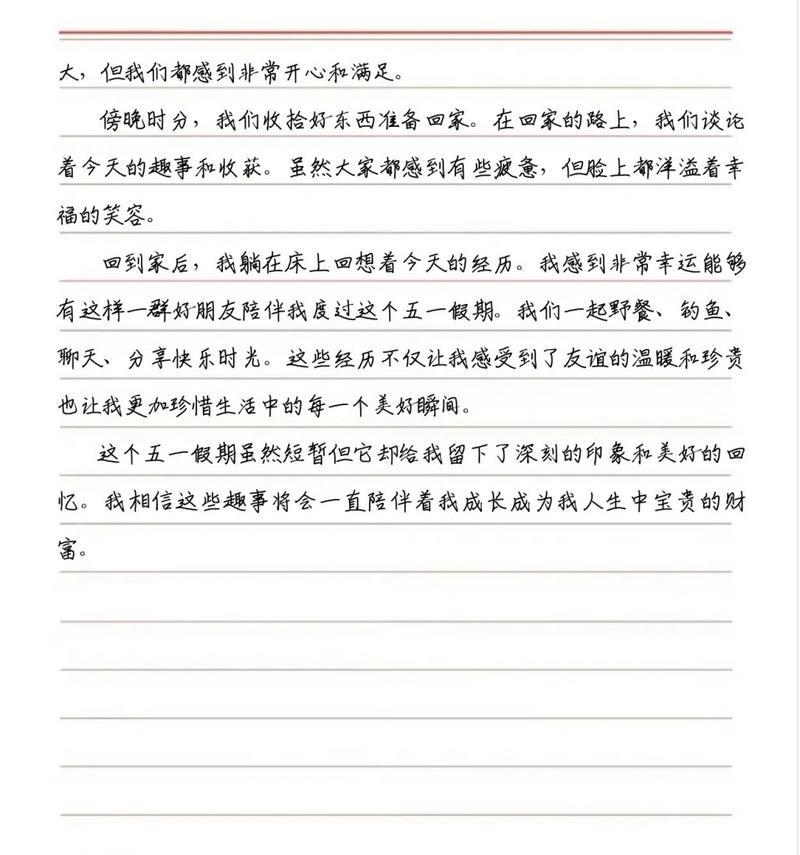 大，但我们都感到非常开心和满足。
傍晚时分，我们收拾好东西准备回家。在回家的路上，我们谈论
着今天的趣事和收获。虽然大家都感到有些疲惫，但脸上都洋溢着幸
福的笑容。
回到家后，我躺在床上回想着今天的经历。我感到非常幸运能够
有这样一群好朋友陪伴我度过这个五一假期。我们一起野餐、钓鱼、
聊天、分享快乐时光。这些经历不仅让我感受到了友谊的温暖和珍贵
也让我更加珍惜生活中的每一个美好瞬间。
这个五一假期虽然短暂但它却给我留下了深刻的印象和美好的回
忆。我相信这些趣事将会一直陪伴着我成长成为我人生中宝贵的财
富。